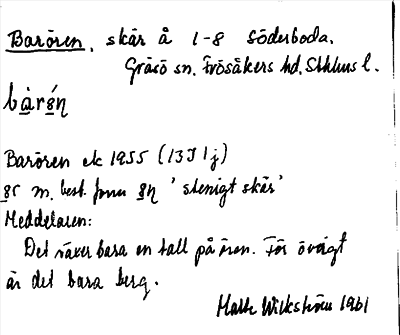 Barören, skär å 1-8 Söderboda,
Gräsö sn. Frösåkers hd. Sthlms l.
bàrǿn
Barören ek 1955 (13J 1j)
m. best. form 'stenigt skär'
Meddelaren:
Det växer bara en tall på ören. För övrigt
är det bara berg.
Wikström 1961